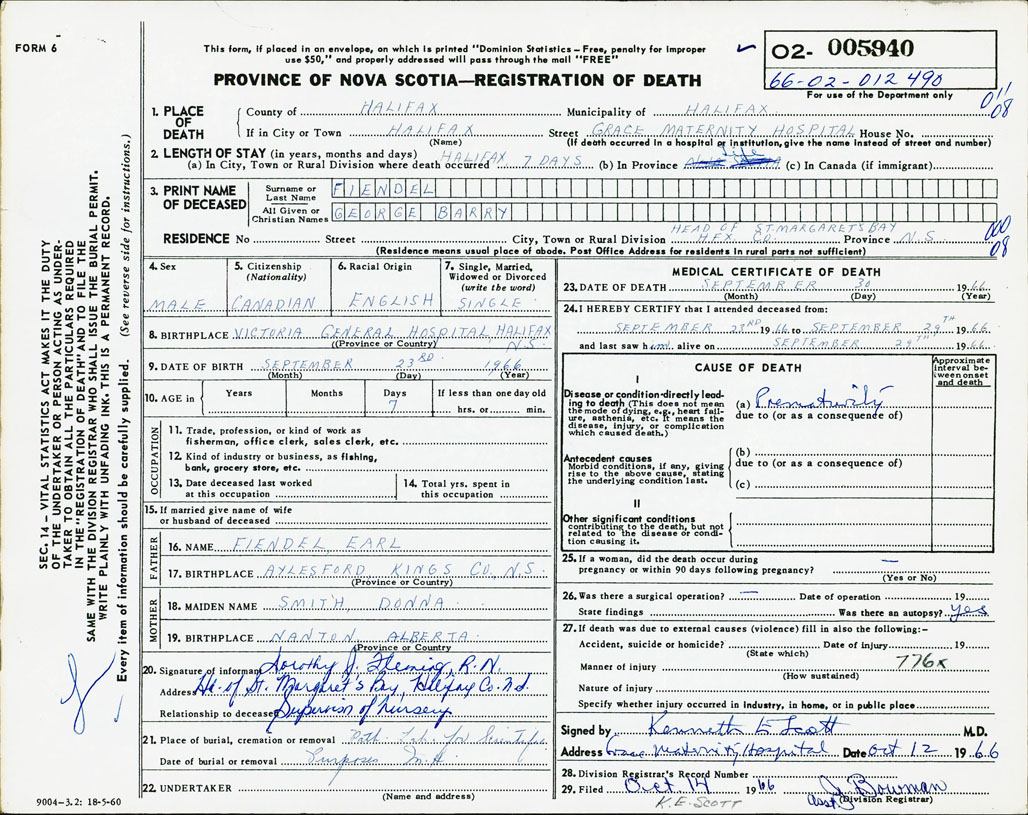 FORM 6
This form, if placed in an envelope, on which is printed "Dominion Statistics – Free, penalty for improper
use $50," and properly addressed will pass through the mail "FREE"
PROVINCE OF NOVA SCOTIA—REGISTRATION OF DEATH
O2- 005940
66-02-012490
For use of the Department only
011
08
1. PLACE OF DEATH
County of HALIFAX Municipality of HALIFAX
If in City or Town HALIFAX Street GRACE MATERNITY HOSPITAL House No.
(Name) (If death occurred in a hospital or institution, give name instead of street and number)
2. LENGTH OF STAY (in years, months and days)
(a) In City, Town or Rural Division where death occurred HALIFAX 7 DAYS (b) In Province Life (c) In Canada (if immigrant)
3. PRINT NAME OF DECEASED
Surname or Last Name FIENDEL
All Given or Christian Names GEORGE BARRY
RESIDENCE No Street City, Town or Rural Division HEAD OF ST. MARGARETS BAY HFX CO. Province N.S.
000
08
(Residence means usual place of abode. Post Office Address for residents in rural parts not sufficient)
4. Sex MALE
5. Citizenship (Nationality) CANADIAN
6. Racial Origin ENGLISH
7. Single, Married, Widowed or Divorced (write the word) SINGLE
8. BIRTHPLACE VICTORIA GENERAL HOSPITAL HALIFAX N.S.
(Province or Country)
9. DATE OF BIRTH SEPTEMBER 23RD 1966
(Month) (Day) (Year)
10. AGE in Years Months Days 7 If less than one day old hrs. or min.
OCCUPATION
11. Trade, profession, or kind of work as
fisherman, office clerk, sales clerk, etc.
12. Kind of industry or business, as fishing,
bank, grocery store, etc.
13. Date deceased last worked
at this occupation
14. Total yrs. spent in
this occupation
15. If married give name of wife
or husband of deceased
FATHER
16. NAME FIENDEL, EARL
17. BIRTHPLACE AYLESFORD, KINGS CO., N.S.
(Province or Country)
MOTHER
18. MAIDEN NAME SMITH, DONNA
19. BIRTHPLACE NANTON, ALBERTA
(Province or Country)
20. Signature of informant Dorothy J. Fleming, R.N.
Address Hd. of St. Margaret's Bay, Halifax Co.
Relationship to deceased Supervisor of Nursery
21. Place of burial, cremation or removal Path. Lab. for Scientific
Date of burial or removal Purposes
22. UNDERTAKER
(Name and address)
MEDICAL CERTIFICATE OF DEATH
23. DATE OF DEATH SEPTEMBER 30 1966
(Month) (Day) (Year)
24. I HEREBY CERTIFY that I attended deceased from:
SEPTEMBER 23RD 1966 to SEPTEMBER 29TH 1966
and last saw him alive on SEPTEMBER 29TH 1966
CAUSE OF DEATH
Approximate interval between onset and death
I
Disease or condition directly leading to death (This does not mean the mode of dying, e.g., heart failure, asthenia, etc. It means the disease, injury, or complication which caused death.)
(a) Prematurity
due to (or as a consequence of)
Antecedent causes
Morbid conditions, if any, giving rise to the above cause, stating the underlying condition last.
(b)
due to (or as a consequence of)
(c)
II
Other significant conditions
contributing to the death, but not related to the disease or condition causing it.
25. If a woman, did the death occur during
pregnancy or within 90 days following pregnancy? —
(Yes or No)
26. Was there a surgical operation? — Date of operation 19
State findings Was there an autopsy? yes
27. If death was due to external causes (violence) fill in also the following:–
Accident, suicide or homicide? Date of injury 19
(State which)
776x
Manner of injury
(How sustained)
Nature of injury
Specify whether injury occurred in industry, in home, or in public place
Signed by Kenneth E Scott M.D.
Address Grace Maternity Hospital Date Oct 12 1966
28. Division Registrar's Record Number
29. Filed Oct 14 1966 J Bowman
K.E. SCOTT Asst (Division Registrar)
9004-3.2: 18-5-60
SEC. 14 – VITAL STATISTICS ACT MAKES IT THE DUTY
OF THE UNDERTAKER OR PERSON ACTING AS UNDER-
TAKER TO OBTAIN ALL THE PARTICULARS REQUIRED
IN THE "REGISTRATION OF DEATH" AND TO FILE THE
SAME WITH THE DIVISION REGISTRAR WHO SHALL ISSUE THE BURIAL PERMIT.
WRITE PLAINLY WITH UNFADING INK. THIS IS A PERMANENT RECORD.
Every item of information should be carefully supplied. (See reverse side for instructions.)